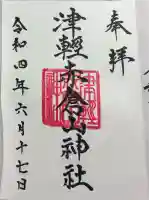 奉拝
津輕赤倉山神社
令和四年六月十七日